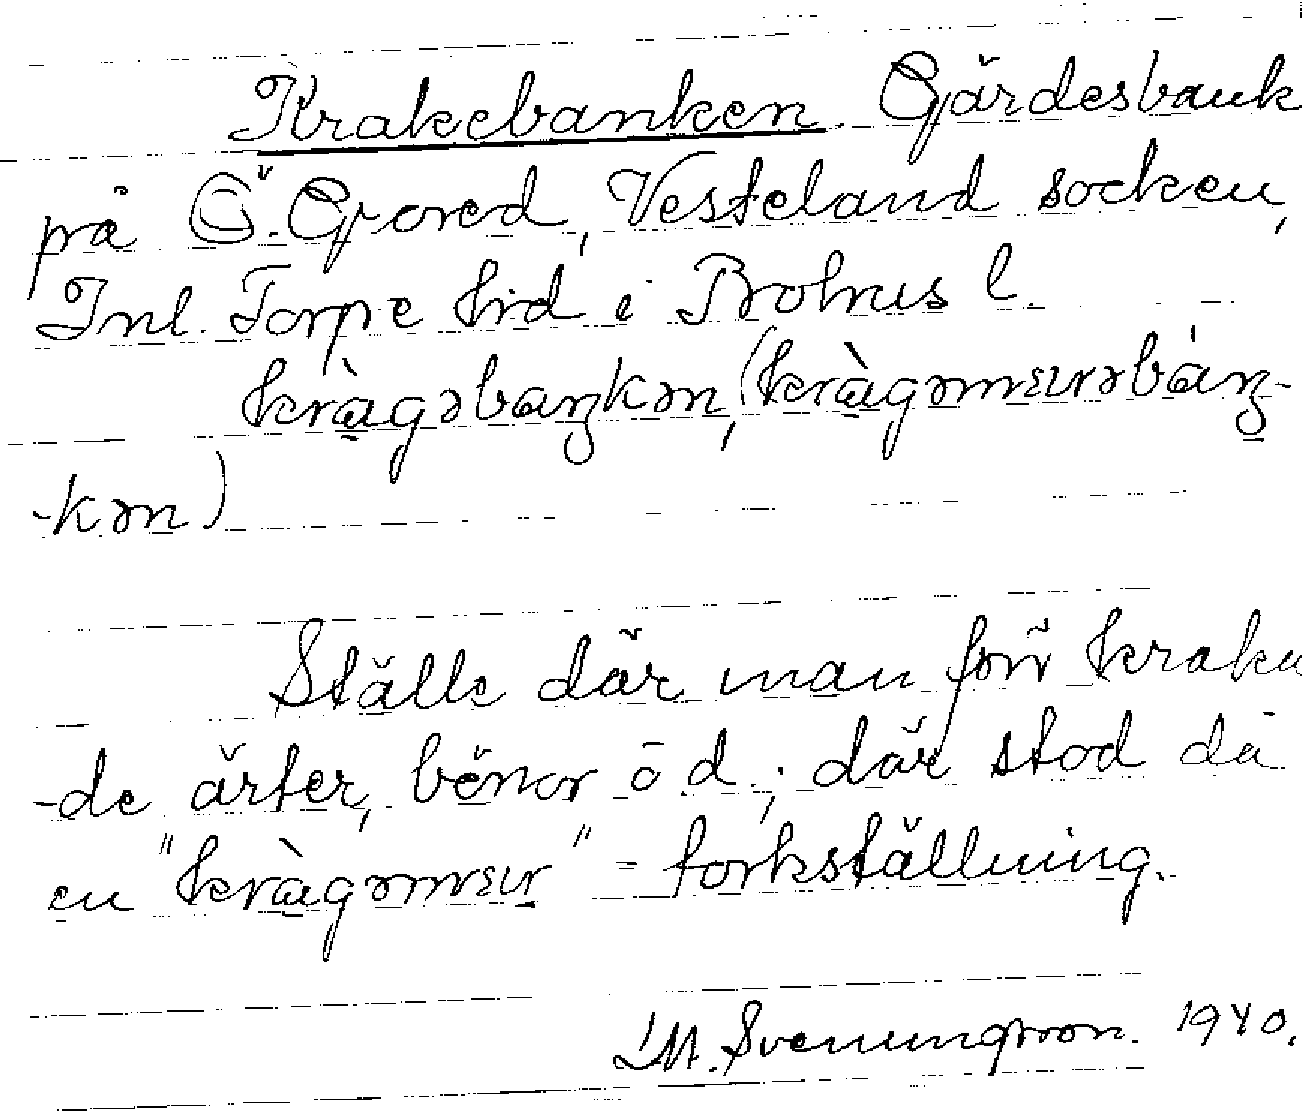 Krakebanken. Gärdesbank
på Ö. Gröred, Vesteland socken,
Inl. Torpe hd i Bohus l.
kràgəbaŋkən, (kràgəmurəbàŋ-
-kən)
Ställe där man förr kraka
-de ärter, bönor o d; där stod då
en "kràgəmur" = torkställning.
M. Svenungsson. 1940.